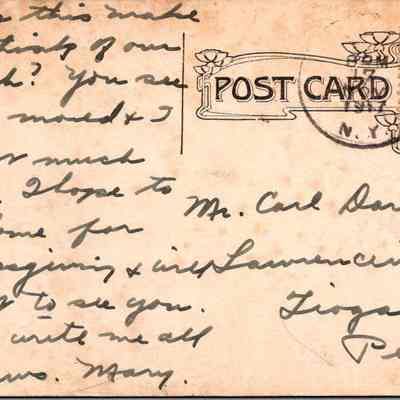 this make
of our
? You see
moved & I
much
I hope to
ome for
sgiving & will
to see you.
write me all
ws. Mary.
POST CARD
PM
17
1917
N.Y.
Mr. Carl Dar
Lawrencevi
Tioga
Pe